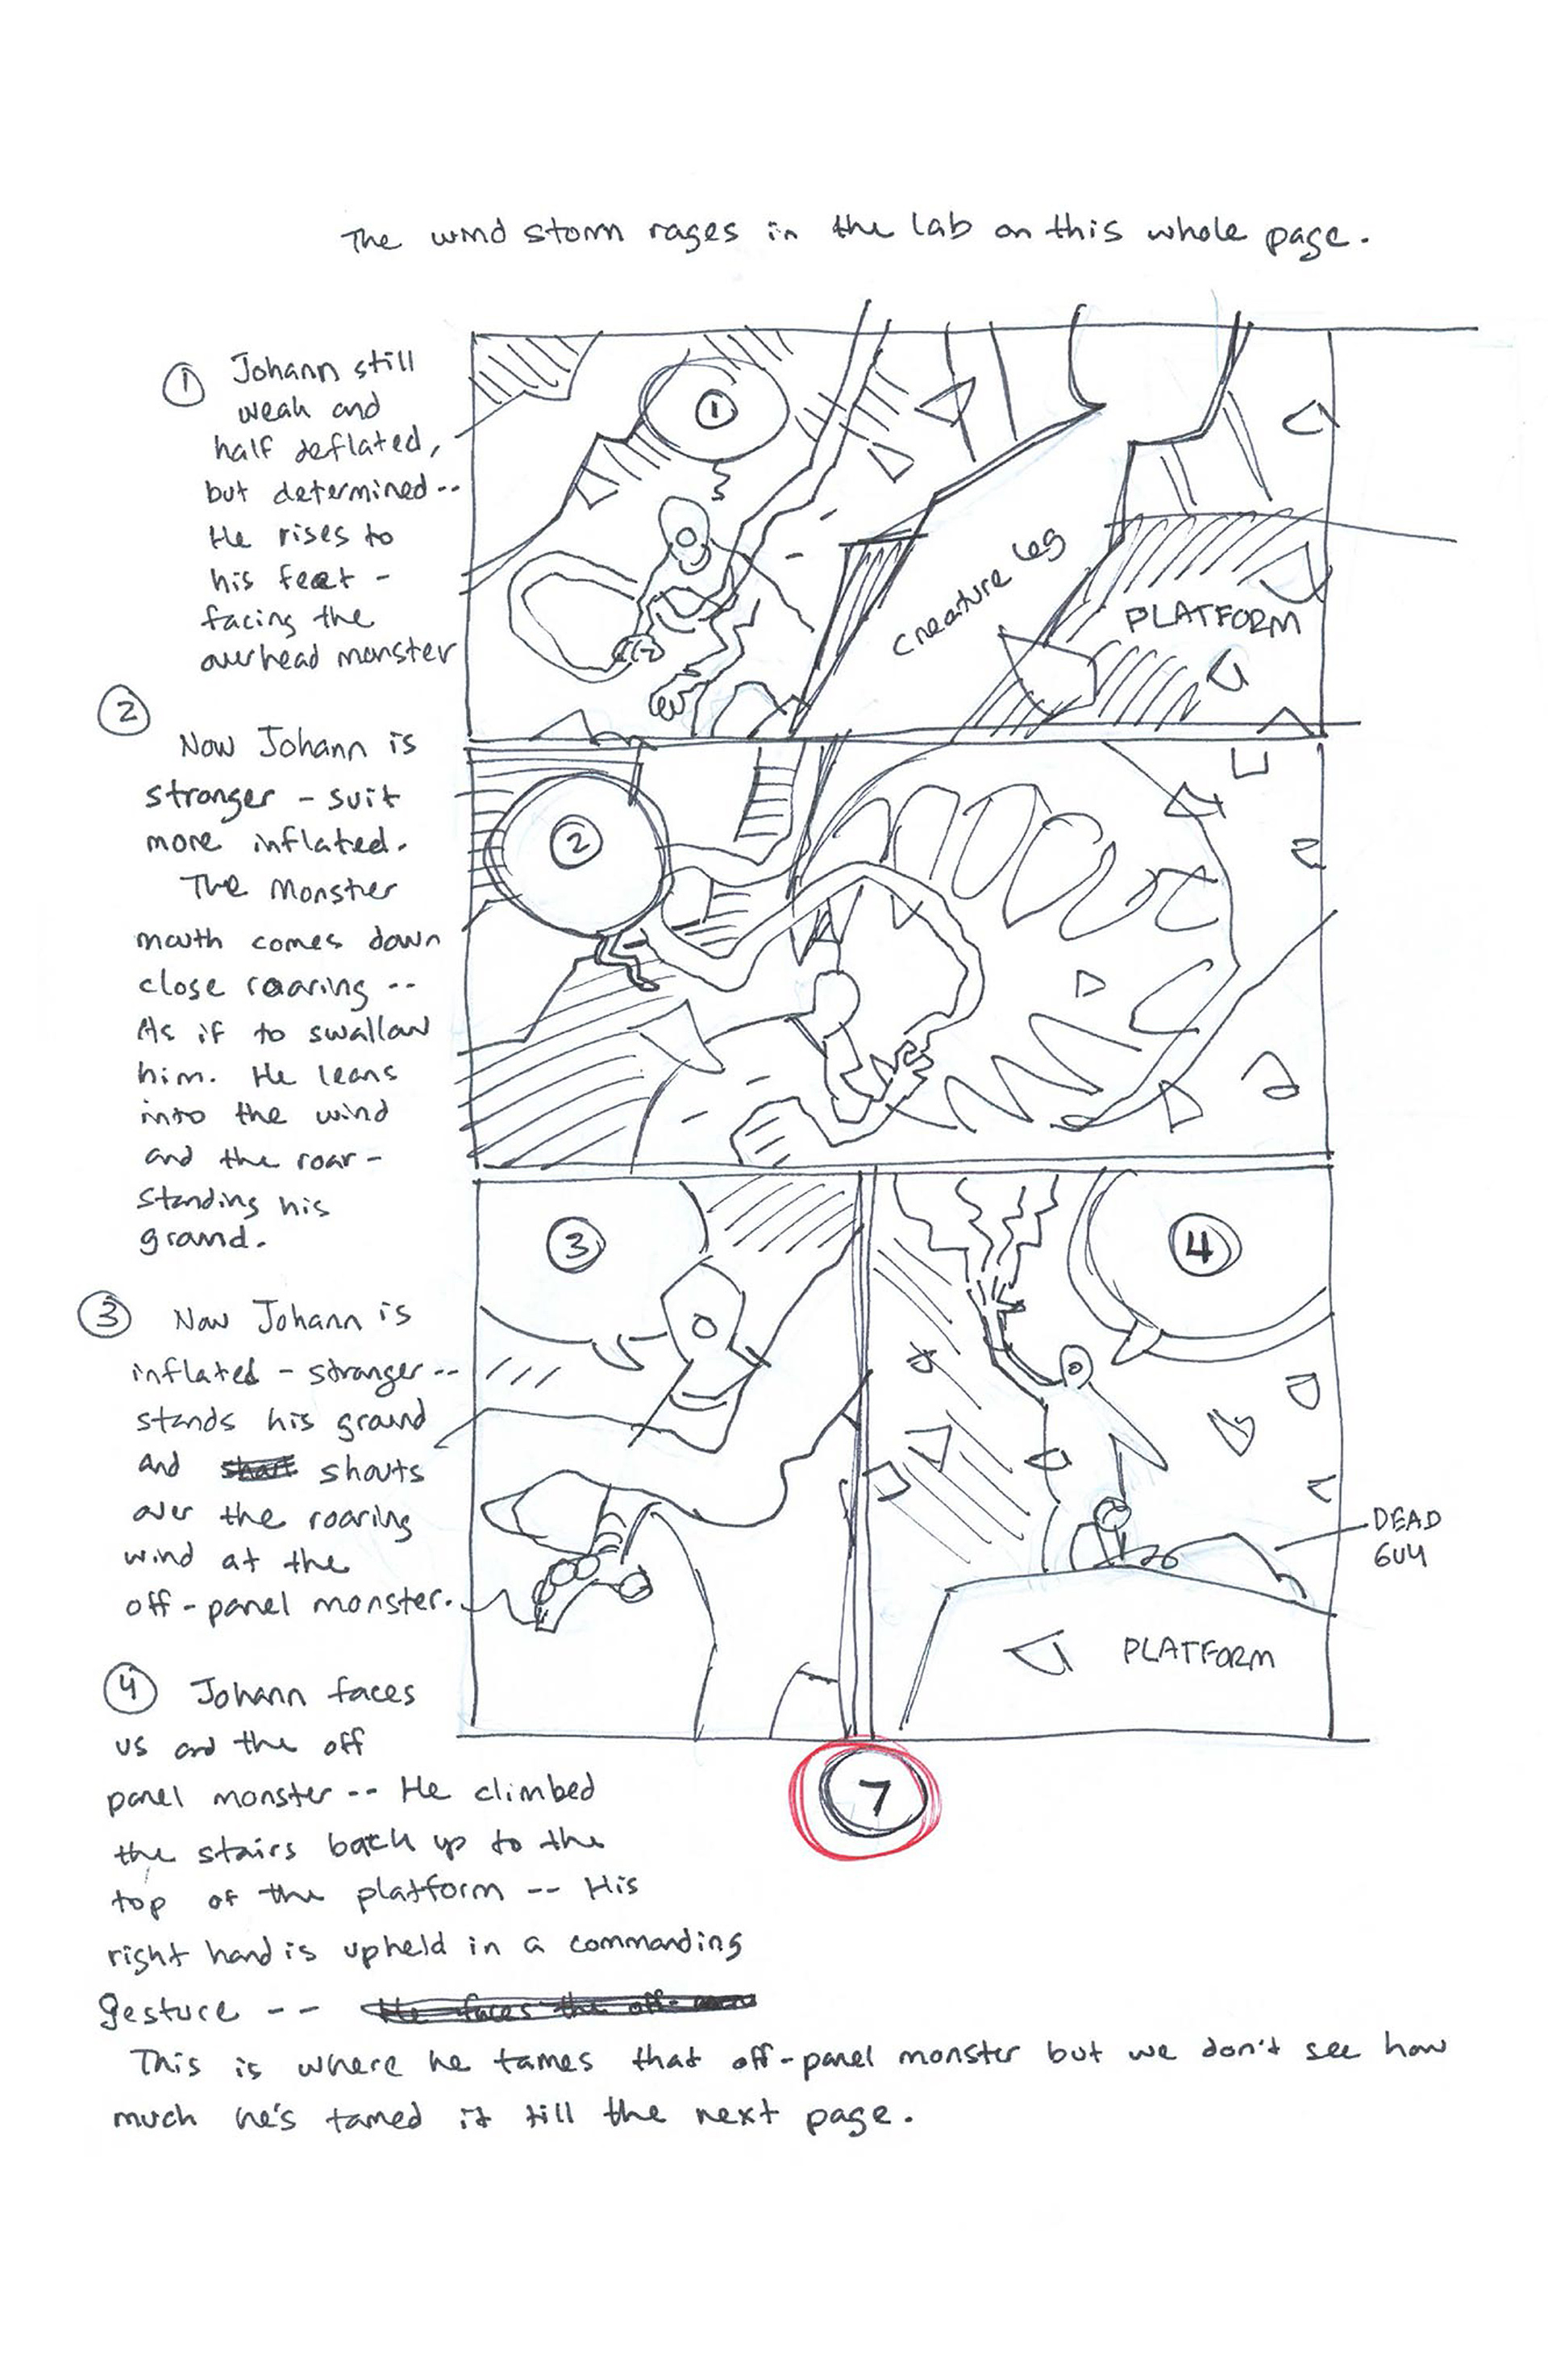 The wind storm rages in the lab on this whole page.
① Johann still
weak and
half deflated,
but determined--
He rises to
his feet -
facing the
overhead monster
②
Now Johann is
stronger - suit
more inflated.
The Monster
mouth comes down
close roaring --
As if to swallow
him. He leans
into the wind
and the roar -
standing his
ground.
③ Now Johann is
inflated - stronger --
stands his ground
and shouts
over the roaring
wind at the
off-panel monster.
④ Johann faces
us and the off
panel monster -- He climbed
the stairs back up to the
top of the platform -- His
right hand is upheld in a commanding
gesture -- He faces the off-
This is where he tames that off-panel monster but we don't see how
much he's tamed it till the next page.
①
creature leg
PLATFORM
②
③
④
DEAD
GUY
PLATFORM
7